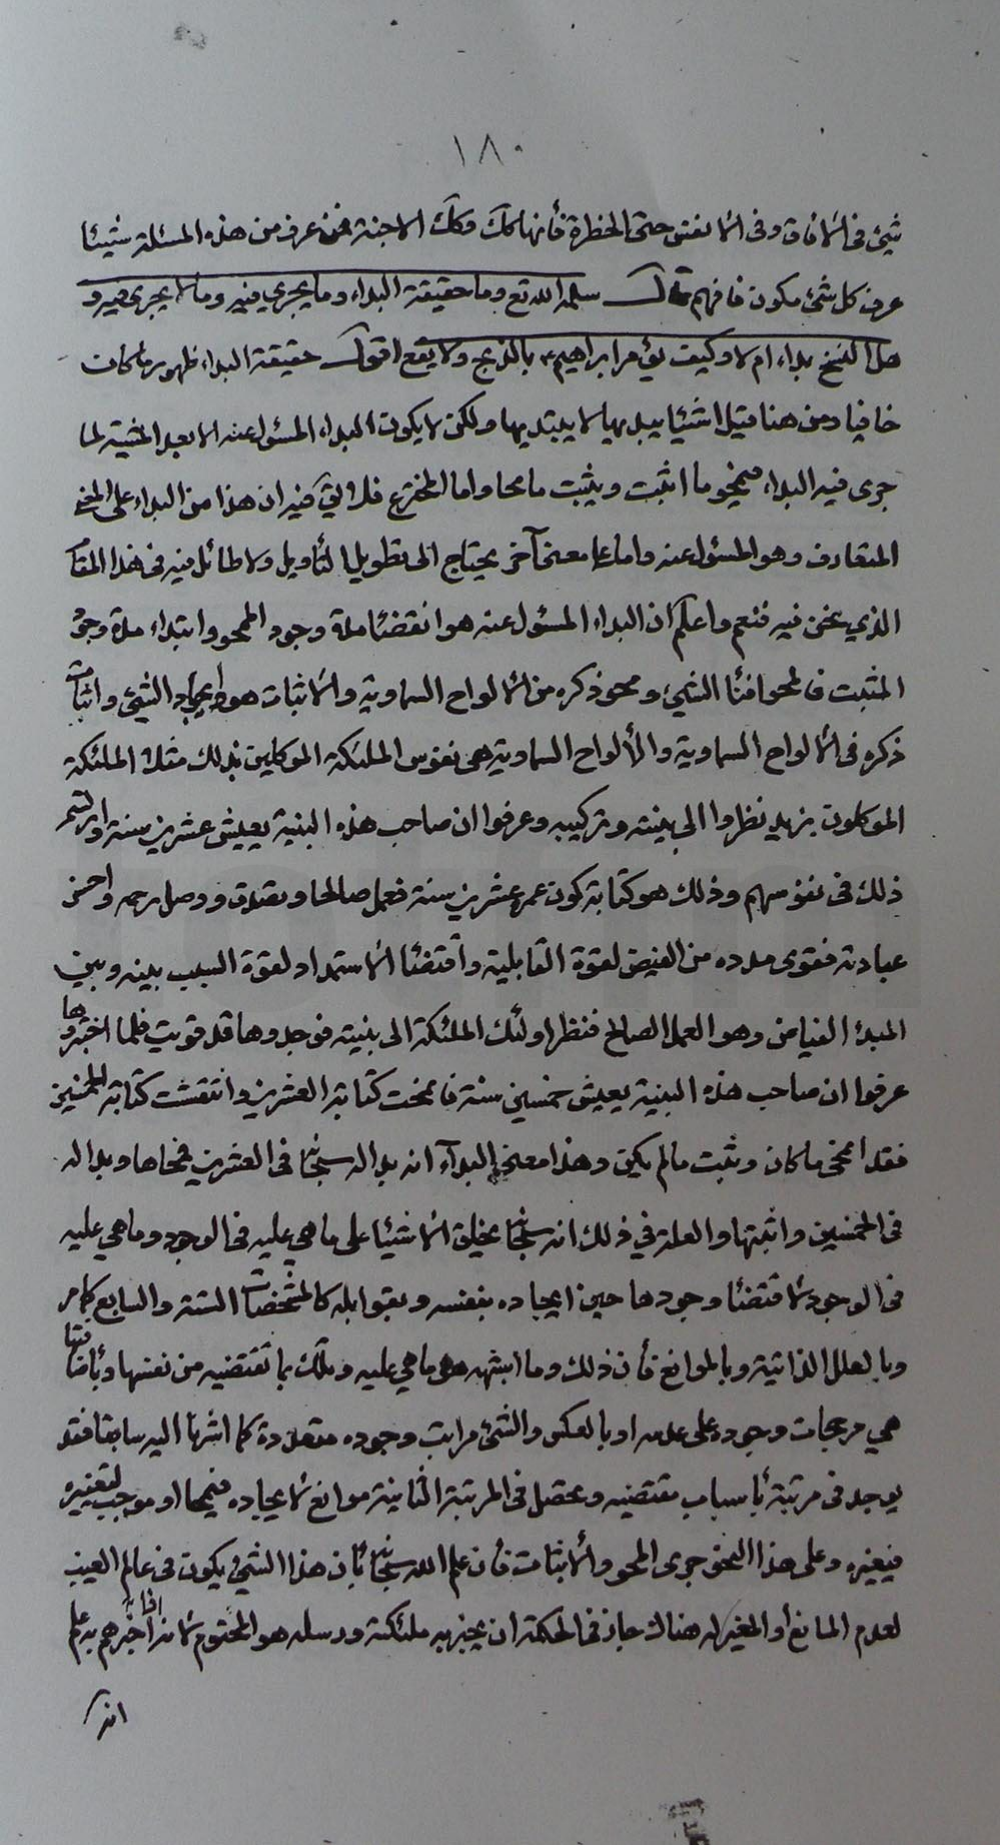 ١٨٠
شيئ في الآفاق وفي الأنفس حتى الخطرة فأنها كك وكك الاجنة فمن عرف من هذه المسئلة شيئا
عرف كل شئ مكون فافهم قال سلمه الله تع وما حقيقة البداء وما يجري فيه وما لا يجري فيه و
هل النسخ بداء ام لا وكيف يؤمر ابراهيم ع بالذبح ولا يقع اقول حقيقة البداء ظهور ما كان
خافيا ومن هنا قيل اشياء يبديها لا يبتديها ولكن لا يكون البداء المسئول عنه الا بعد المشية لما
جرى فيه البداء فيمحو ما اثبت ويثبت ما محا واما المخترع فلا يق فيه ان هذا من البداء على المعنى
المتعارف وهو المسئول عنه واما على معنى آخر يحتاج الى تطويل التأويل ولا طائل فيه في هذا المقام
الذي نحن فيه فنعم واعلم ان البداء المسئول عنه هو انقضاء مدة وجود الممحو وابتداء مدة وجود
المثبت فالمحو افناء الشيئ ومحو ذكره من الألواح السماوية والأثبات هو ايجاد الشيئ واثبات
ذكره في الألواح السماوية والألواح السماوية هي نفوس الملئكة الموكلين بذلك مثلا الملئكة
الموكلون بزيد نظروا الى بنيته وتركيبه وعرفوا ان صاحب هذه البنية يعيش عشرين سنة وارتسم
ذلك في نفوسهم وذلك هو كتابة كون عمره عشرين سنة فعمل صالحا وتصدق ووصل رحمه واحسن
عبادته فقوى مدده من الفيض لقوة القابلية واقتضاء الأستمداد لقوة السبب بينه وبين
المبدء الفياض وهو العمل الصالح فنظر اولئك الملئكة الى بنيته فوجدوها قد قويت فلما اختبروها
عرفوا ان صاحب هذه البنية يعيش خمسين سنة فامحت كتابة العشرين وانتقشت كتابة الخمسين
فقد امحى ما كان وثبت ما لم يكن وهذا معنى البدآء انه بدا له سبحانه في العشرين فمحاها وبدا له
في الخمسين واثبتها والعلة في ذلك انه سبحانه يخلق الأشياء على ما هي عليه في الوجود وما هي عليه
في الوجود لاقتضاء وجودها حين ايجاده بنفسه وبقوابله كالمشخصات الستة والسابع كما مر
وبالعلل الذاتية وبالموانع فأن ذلك وما اشبهه هي ما هي عليه وتلك بما تقتضيه من نفسها وبأضافتها
هي مرجحات وجوده على عدمه او بالعكس والشئ مراتب وجوده متعددة كما اشرنا اليه سابقا فقد
يوجد في مرتبة بأسباب مقتضيه ويحصل في المرتبة الثانية موانع لايجاده فيمحا او موجب لتغييره
فيغيره وعلى هذا النحو جرى المحو والأثبات فأن علم الله سبحانه بأن هذا الشئ يكون في عالم الغيب
لعدم المانع أو المغير له هناك جاز في الحكمة ان يخبر به ملئكته ورسله هو المحتوم لأنه اذا اخبرهم به علم
انه